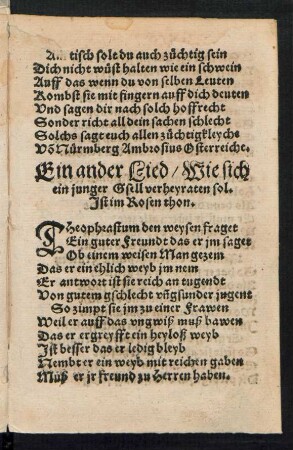 Am tisch solt du auch züchtig sein
Dich nicht wüst halten wie ein schwein
Auff das wenn du von selben Leuten
Kombst sie mit fingern auff dich deuten
Vnd sagen dir nach solch hoffrecht
Sonder richt all dein sachen schlecht
Solchs sagt euch allen züchtigkleych
Võ Nürmberg Ambrosius Osterreicher.
Ein ander Lied / Wie sich
ein junger Gsell verheyraten sol.
Ist im Rosen thon.
THeophrastum den weysen fraget
Ein guter Freundt das er jm saget
Ob einem weisen Man gezem
Das er ein ehlich weyb jm nem
Er antwort ist sie reich an tugendt
Von gutem gschlecht vñ gsunder jugent
So zimpt sie jm zu einer Frawen
Weil er auff das vngwiß muß bawen
Das er ergreyfft ein heyloß weyb
Ist besser das er ledig bleyb
Nembt er ein weyb mit reichen gaben
Müß er jr freund zu Herren haben.